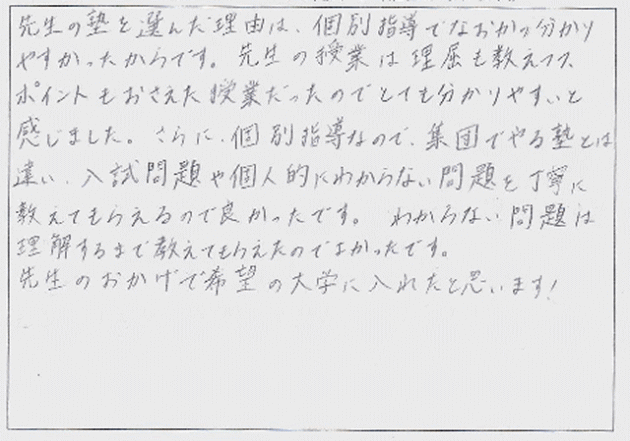 先生の塾を選んだ理由は、個別指導でなおかつ分かり
やすかったからです。先生の授業は理屈も教えつつ、
ポイントもおさえた授業だったのでとても分かりやすいと
感じました。さらに、個別指導なので、集団でやる塾とは
違い、入試問題や個人的にわからない問題を丁寧に
教えてもらえるので良かったです。わからない問題は
理解するまで教えてもらえたのでよかったです。
先生のおかげで希望の大学に入れたと思います!